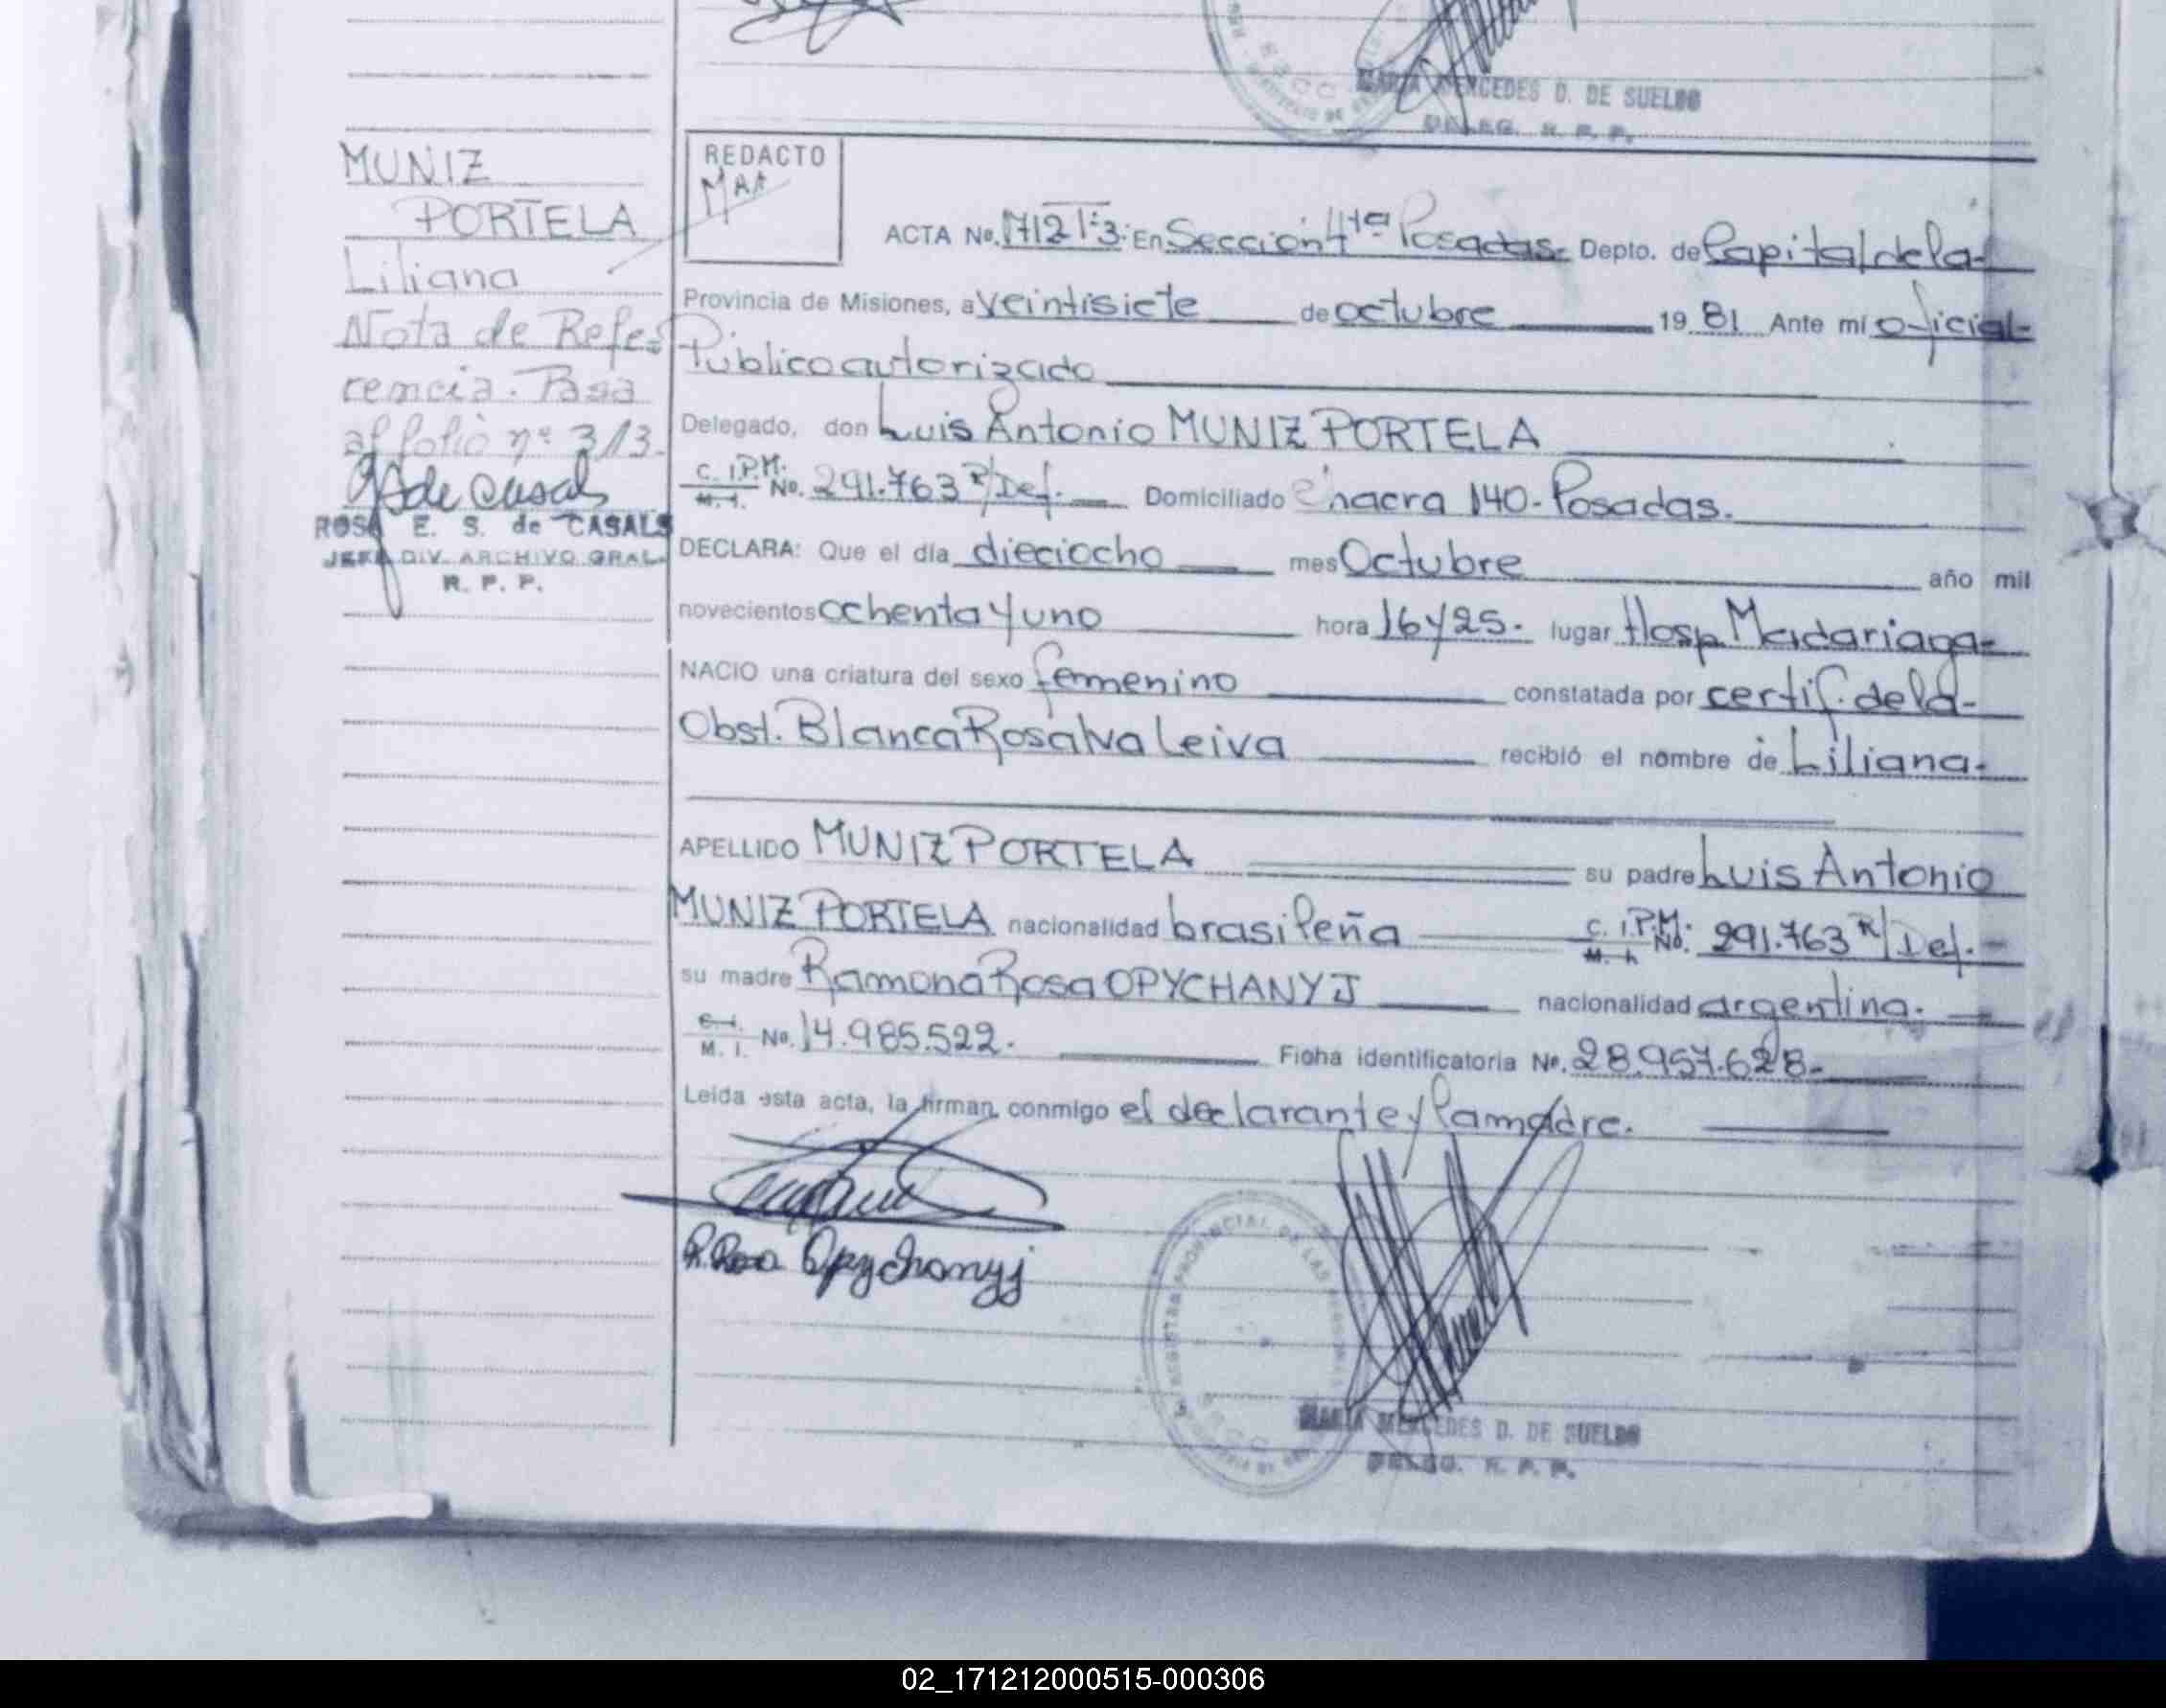 MARIA MERCEDES D. DE SUELDO
DELEG. R. P. P.
MUNIZ
PORTELA
Liliana
Nota de Refe=
rencia. Pasa
al folio nº 313.
ROSA E. S. de CASALS
JEFA DIV. ARCHIVO GRAL.
R. P. P.
REDACTO
ACTA No. En Sección 4ta Posadas- Depto. de Capital de la-
Provincia de Misiones, a veintisiete de octubre 19 81 Ante mí oficial-
Público autorizado
Delegado, don Luis Antonio MUNIZ PORTELA
C. I.P.M. M. I. No. 291.763 R/Def. Domiciliado Chacra 140-Posadas.
DECLARA: Que el día dieciocho mes Octubre año mil
novecientos ochenta y uno hora 16 y 25. lugar Hosp. Madariaga-
NACIO una criatura del sexo femenino constatada por certif. de la-
Obst. Blanca Rosalva Leiva recibió el nombre de Liliana.
APELLIDO MUNIZ PORTELA su padre Luis Antonio
MUNIZ PORTELA nacionalidad brasileña C. I.P.M. M. I. No. 291.763 R/Def.-
su madre Ramona Rosa OPYCHANYJ nacionalidad argentina.
C. I. M. I. No. 14.985.522. Ficha identificatoria No. 28.957.628-
Leída esta acta, la firman conmigo el declarante y la madre.
R. Rosa Opychanyj
MARIA MERCEDES D. DE SUELDO
DELEG. R. P. P.
02_171212000515-000306